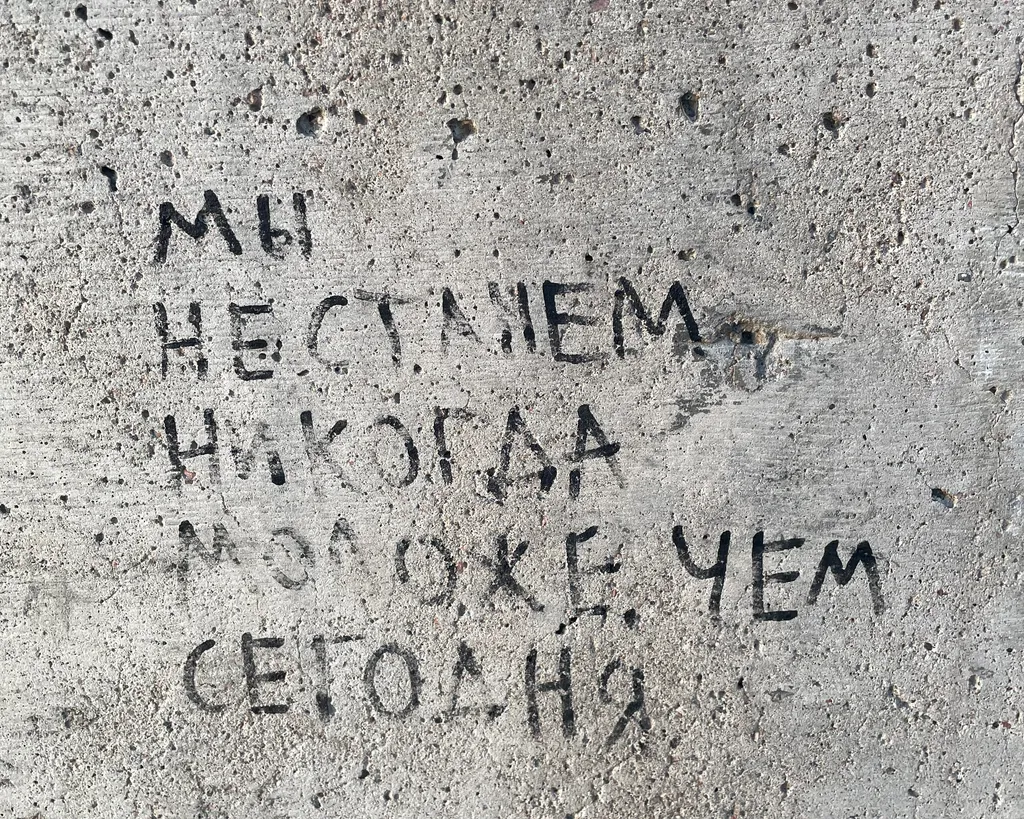 МЫ
НЕ СТАНЕМ
НИКОГДА
МОЛОЖЕ, ЧЕМ
СЕГОДНЯ